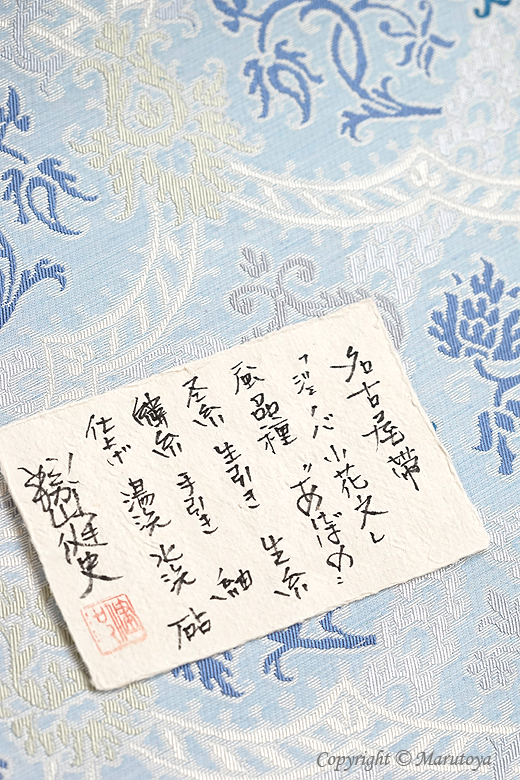 名古屋帯
「ジェノバ小花文」
蚕品種 “あけぼの”
経糸 生引き 生糸
緯糸 手引き 紬
仕上げ 湯洗 水洗 砧
勝山健史
Copyright © Marutoya